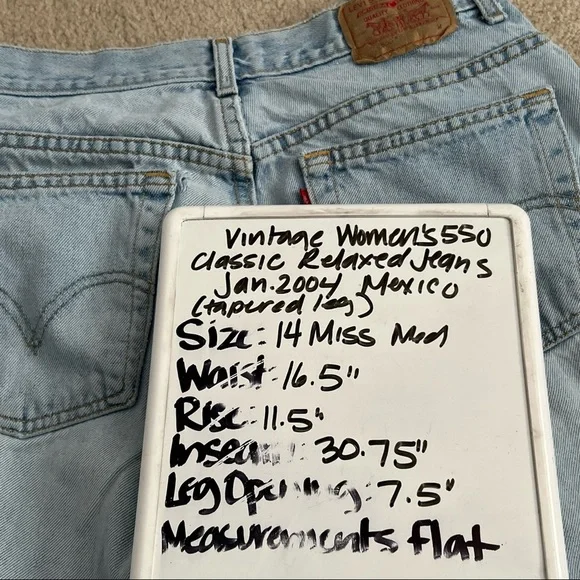 Vintage Women's 550
Classic Relaxed Jeans
Jan. 2004 Mexico
(tapered leg)
Size: 14 Miss Med
Waist: 16.5"
Rise: 11.5"
Inseam: 30.75"
Leg Opening: 7.5"
Measurements flat